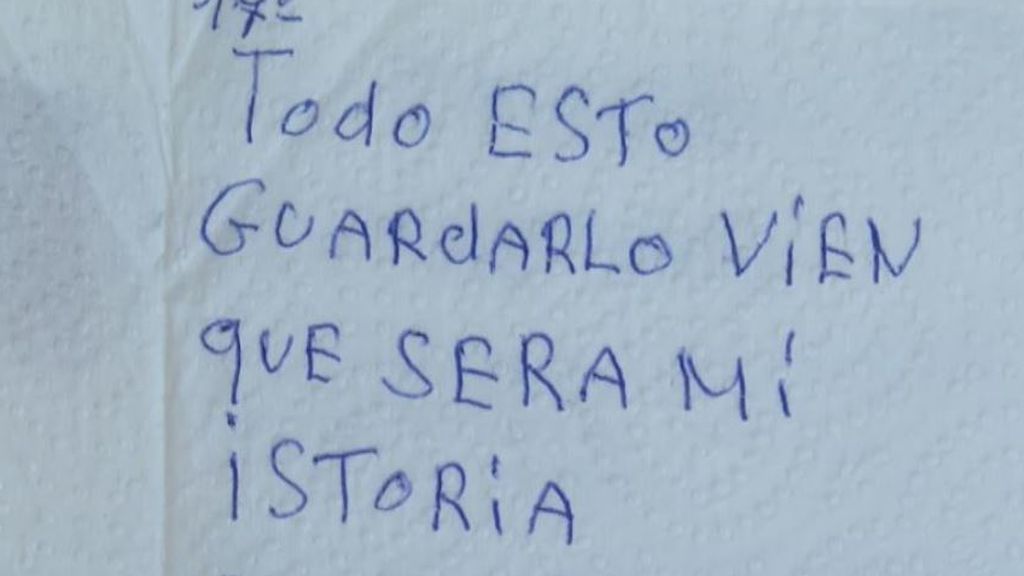 17º
Todo ESTO
GUARdARLO ViEN
qUE SERA Mi
iSTORiA